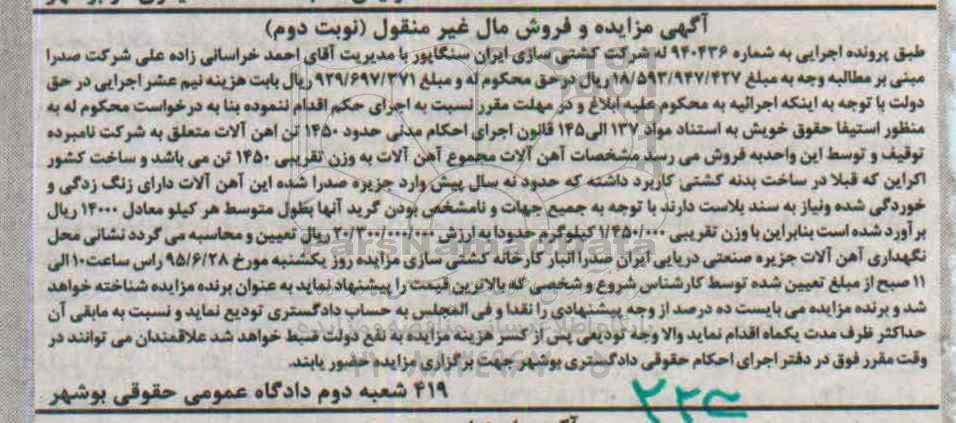 آگهی مزایده و فروش مال غیر منقول (نوبت دوم)
طبق پرونده اجرایی به شماره ۹۴۰۴۳۶ له شرکت کشتی سازی ایران سنگاپور با مدیریت آقای احمد خراسانی زاده علی شرکت صدرا
مبنی بر مطالبه وجه به مبلغ ۱۸/۵۹۳/۹۴۷/۴۲۷ ریال در حق محکوم له و مبلغ ۹۲۹/۶۹۷/۳۷۱ ریال بابت هزینه نیم عشر اجرایی در حق
دولت با توجه به اینکه اجرائیه به محکوم علیه ابلاغ و در مهلت مقرر نسبت به اجرای حکم اقدام ننموده بنا به درخواست محکوم له به
منظور استیفا حقوق خویش به استناد مواد ۱۳۷ الی ۱۴۵ قانون اجرای احکام مدنی حدود ۱۴۵۰ تن اهن آلات متعلق به شرکت نامبرده
توقیف و توسط این واحد به فروش می رسد مشخصات آهن آلات مجموع آهن آلات به وزن تقریبی ۱۴۵۰ تن می باشد و ساخت کشور
اکراین که قبلا در ساخت بدنه کشتی کاربرد داشته که حدود نه سال پیش وارد جزیره صدرا شده این آهن آلات دارای زنگ زدگی و
خوردگی شده ونیاز به سند بلاست دارند با توجه به جمیع جهات و نامشخص بودن گرید آنها بطول متوسط هر کیلو معادل ۱۴۰۰۰ ریال
برآورد شده است بنابراین با وزن تقریبی ۱/۴۵۰/۰۰۰ کیلوگرم حدودا به ارزش ۲۰/۳۰۰/۰۰۰/۰۰۰ ریال تعیین و محاسبه می گردد نشانی محل
نگهداری آهن آلات جزیره صنعتی دریایی ایران صدرا انبار کارخانه کشتی سازی مزایده روز یکشنبه مورخ ۹۵/۶/۲۸ راس ساعت ۱۰ الی
۱۱ صبح از مبلغ تعیین شده توسط کارشناس شروع و شخصی که بالاترین قیمت را پیشنهاد نماید به عنوان برنده مزایده شناخته خواهد
شد و برنده مزایده می بایست ده درصد از وجه پیشنهادی را نقدا و فی المجلس به حساب دادگستری تودیع نماید و نسبت به مابقی آن
حداکثر ظرف مدت یکماه اقدام نماید والا وجه تودیعی پس از کسر هزینه مزایده به نفع دولت ضبط خواهد شد علاقمندان می توانند در
وقت مقرر فوق در دفتر اجرای احکام حقوقی دادگستری بوشهر جهت برگزاری مزایده حضور یابند.
۴۱۹ شعبه دوم دادگاه عمومی حقوقی بوشهر
ParsNamadData